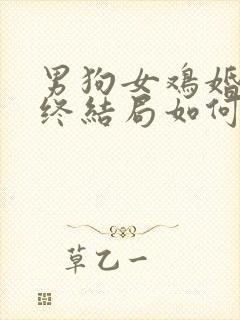 男狗女鸡婚
终结局如何
草乙一